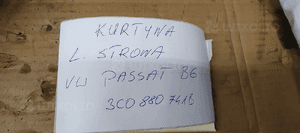 KURTYNA
L. STRONA
VW PASSAT B6
3C0 880 741B